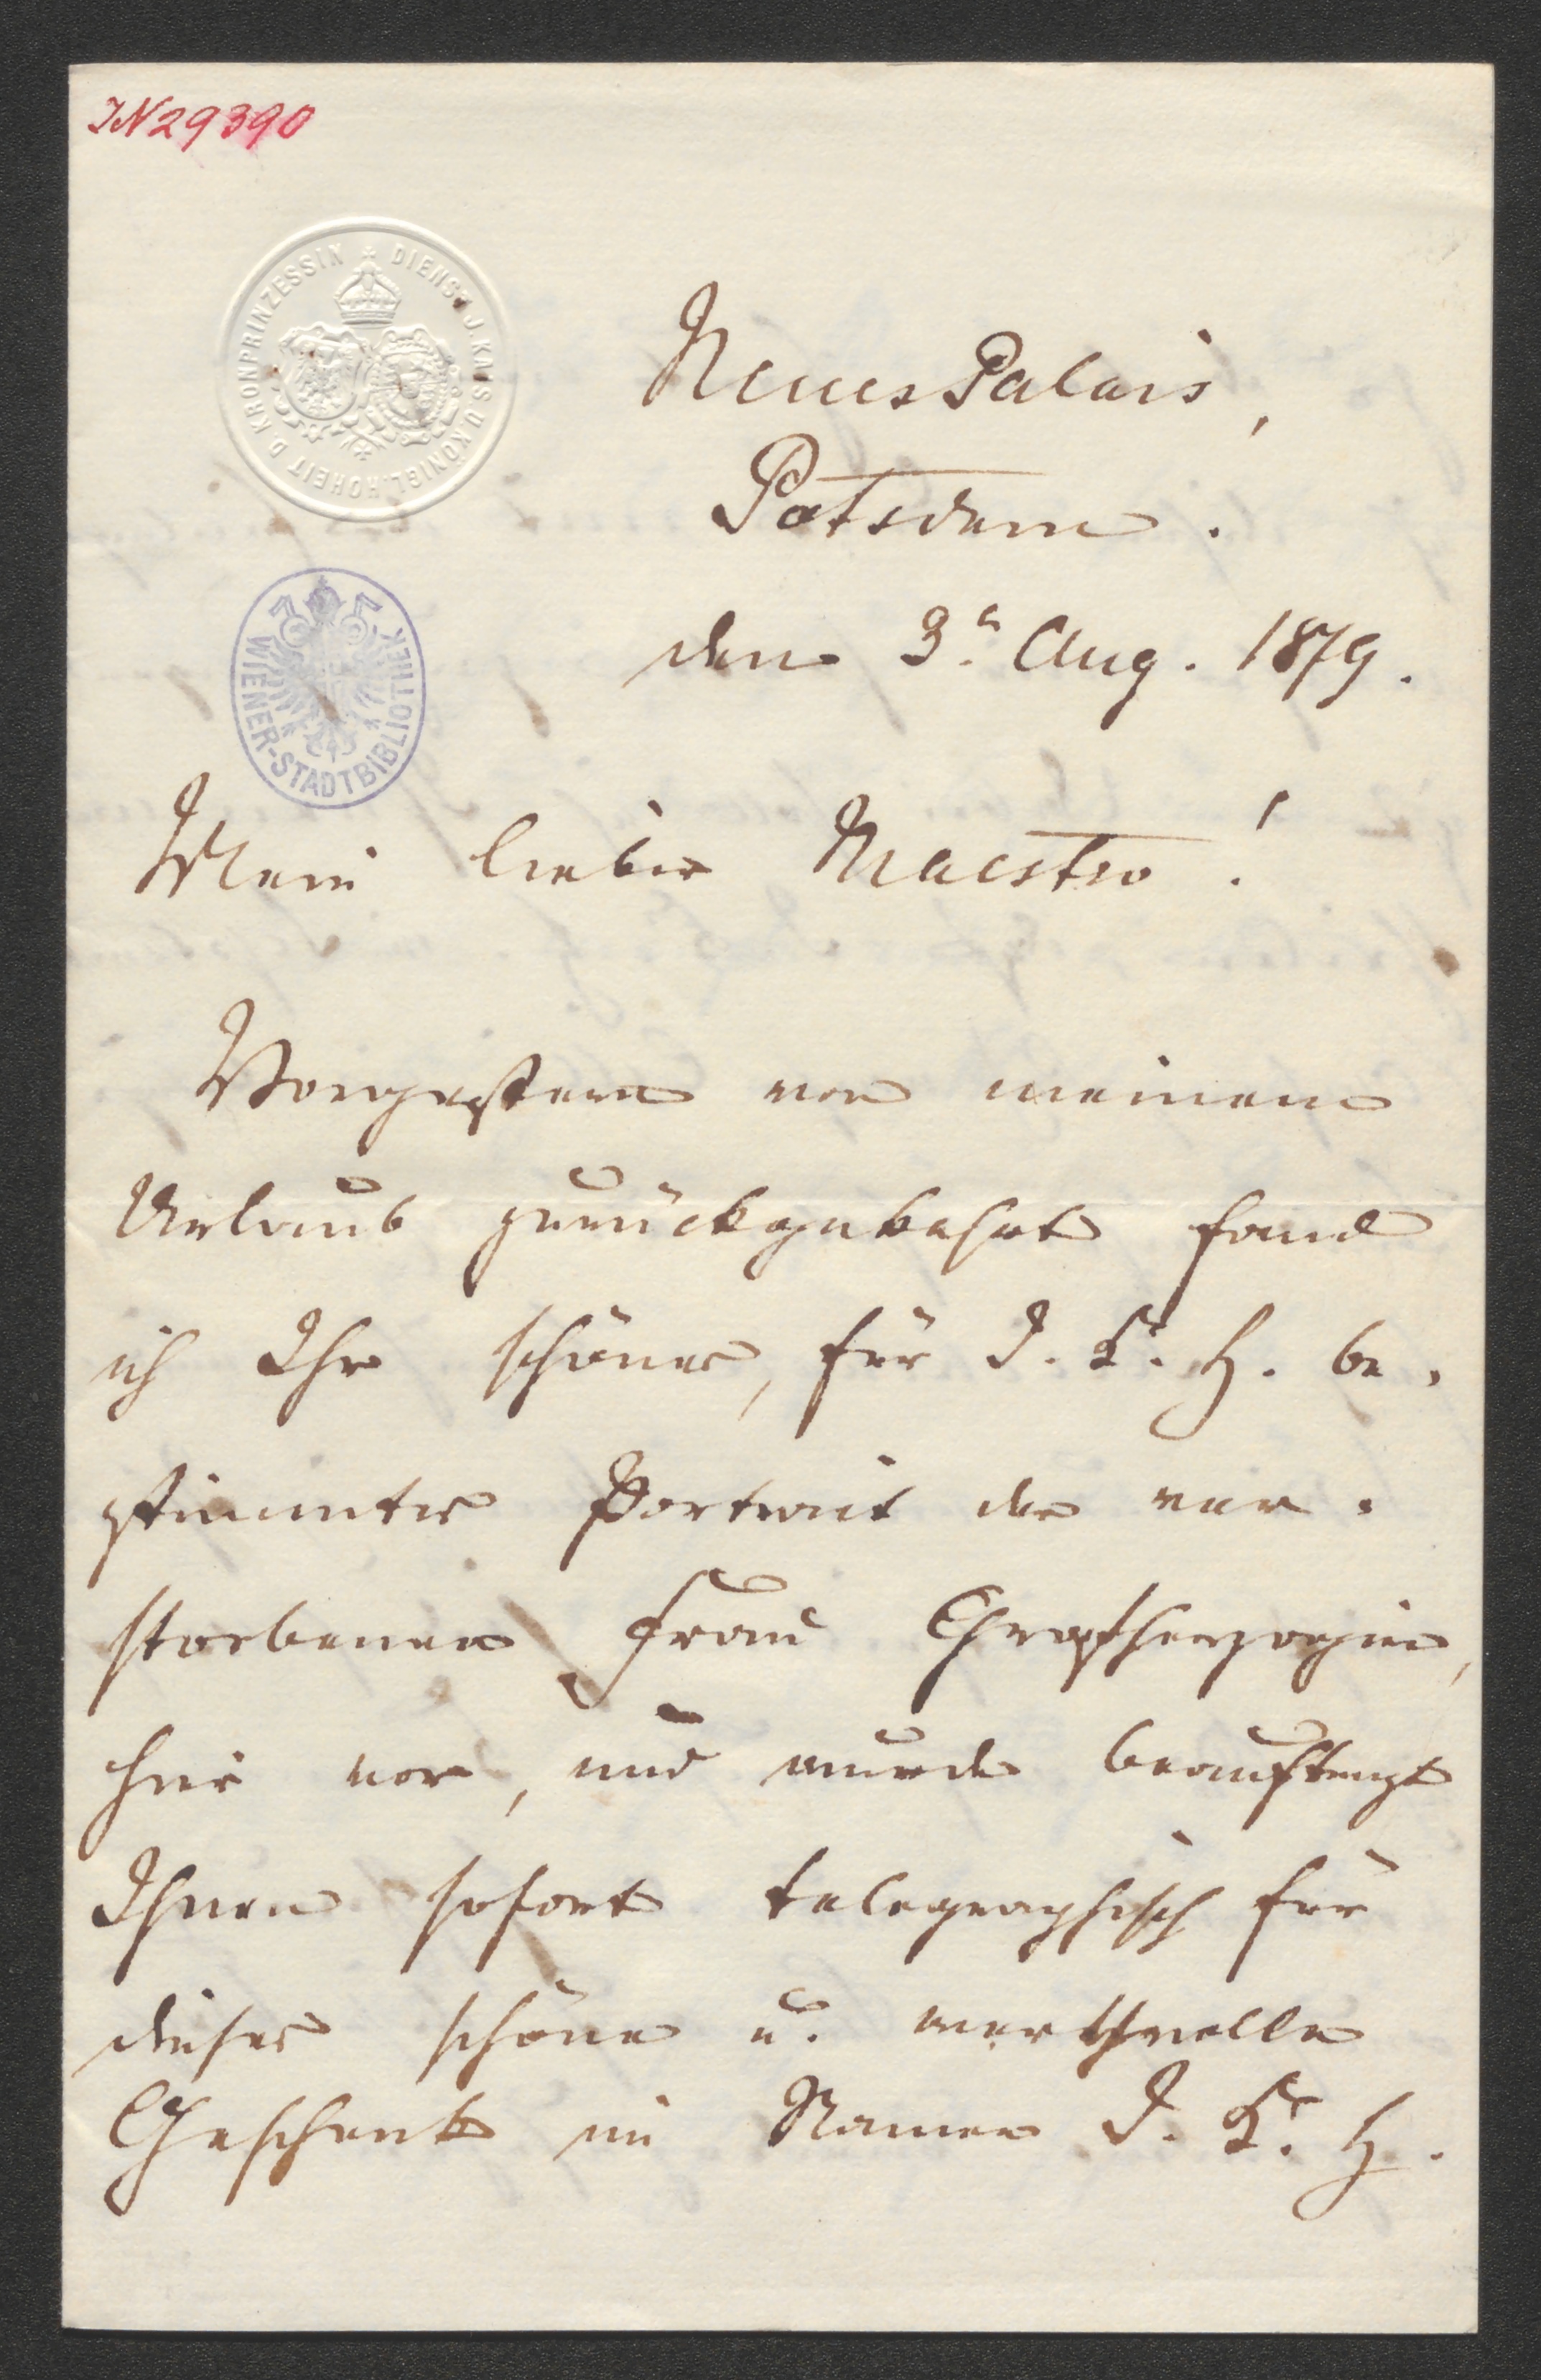 IN 29390
DIENST J. KAIS. U. KÖNIGL. HOHEIT D. KRONPRINZESSIN
Neues Palais,
Potsdam.
den 3n. Aug. 1879.
WIENER-STADTBIBLIOTHEK
Mein lieber Maestro!
Vorgestern von meinem
Urlaub zurückgekehrt fand
ich Ihr schönes, für I. K. H. be-
stimmtes Portrait der ver-
storbenen Frau Großherzogin,
hier vor, und wurde beauftragt
Ihnen sofort telegraphisch für
dieses schöne u. werthvolle
Geschenk im Namen I. K. H.